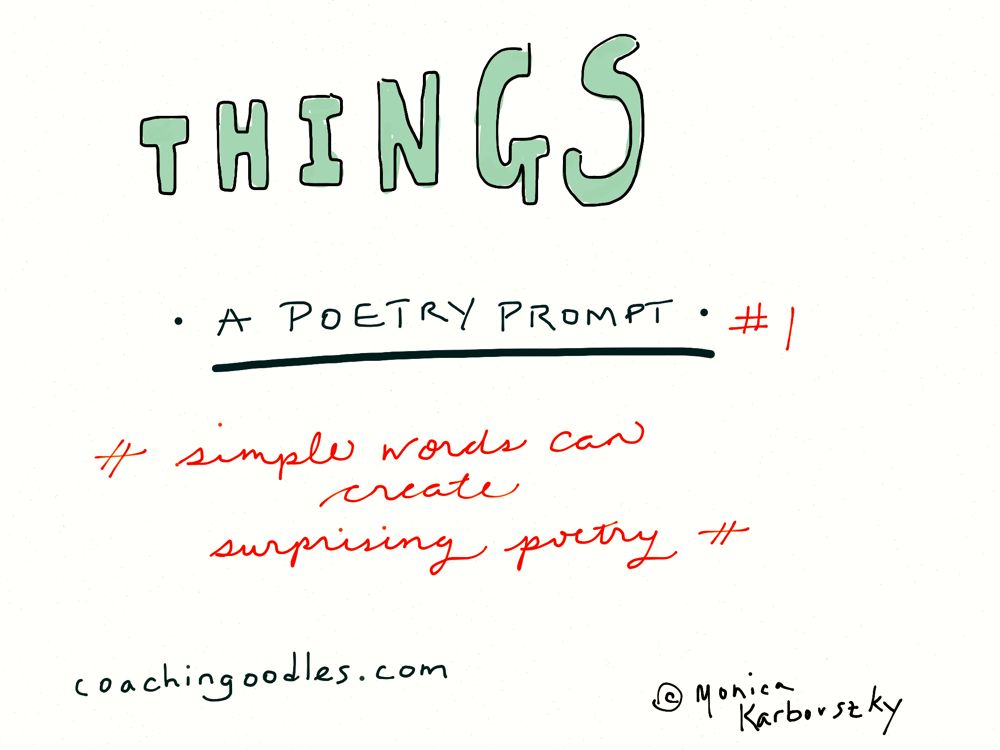 THINGS
• A POETRY PROMPT • #1
# simple words can
create
surprising poetry #
coachingoodles.com
© Monica
Karbovszky